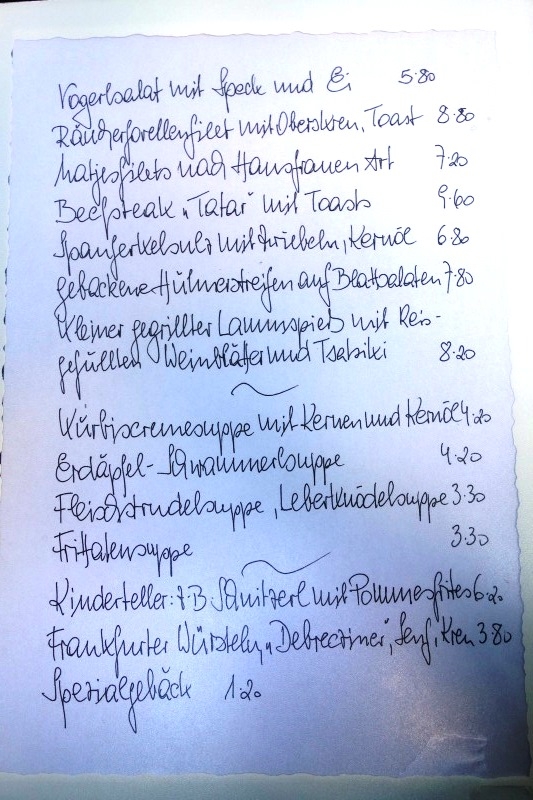 Vogerlsalat mit Speck und Ei 5.80
Räucherforellenfilet mit Oberskren, Toast 8.80
Matjesfilets nach Hausfrauen Art 7.20
Beefsteak „Tatar" mit Toasts 9.60
Spanferkelsulz mit Zwiebeln, Kernöl 6.80
gebackene Hühnerstreifen auf Blattsalaten 7.80
Kleiner gegrillter Lammspieß mit Reis-
gefüllten Weinblätter und Tsatsiki 8.20
Kürbiscremesuppe mit Kernen und Kernöl 4.20
Erdäpfel-Schwammerlsuppe 4.20
Fleischstrudelsuppe, Leberknödelsuppe 3.30
Frittatensuppe 3.30
Kinderteller: z.B. Schnitzerl mit Pommesfrites 6.20
Frankfurter Würsteln, „Debrecziner", Senf, Kren 3.80
Spezialgebäck 1.20